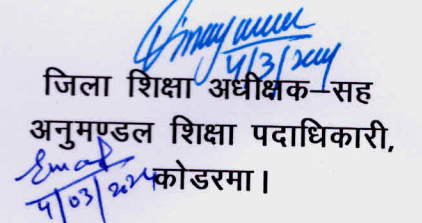 4/3/2024
जिला शिक्षा अधीक्षक–सह
अनुमण्डल शिक्षा पदाधिकारी,
कोडरमा।
4/03/2024